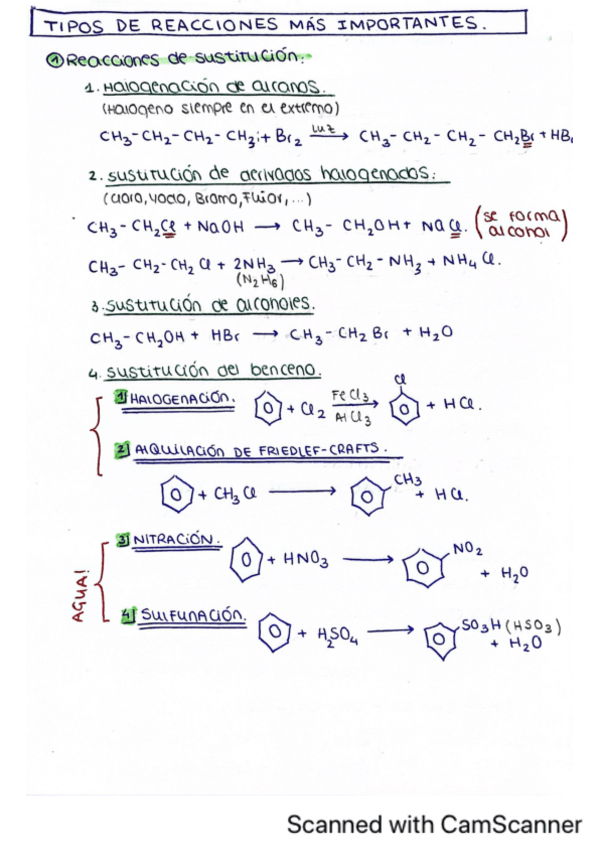 TIPOS DE REACCIONES MÁS IMPORTANTES.
① Reacciones de sustitución:
1. Halogenación de alcanos.
(Halogeno siempre en el extremo)
CH₃-CH₂-CH₂-CH₃ + Br₂ —Luz→ CH₃-CH₂-CH₂-CH₂Br + HB
2. sustitución de derivados halogenados:
(cloro, yodo, Bromo, Fluor, ...)
CH₃-CH₂Cl + NaOH → CH₃-CH₂OH + NaCl. (se forma alcohol)
CH₃-CH₂-CH₂Cl + 2NH₃ → CH₃-CH₂-NH₃ + NH₄Cl.
(N₂H₆)
3. sustitución de alcoholes.
CH₃-CH₂OH + HBr → CH₃-CH₂Br + H₂O
4. sustitución del benceno.
Cl
1) HALOGENACIÓN. + Cl₂ FeCl₃ → + HCl.
AlCl₃
2) AlQUILACIÓN DE FRIEDLEF-CRAFTS.
+ CH₃Cl → CH₃ + HCl.
3) NITRACIÓN. + HNO₃ → NO₂ + H₂O
AGUA!
4) SULFUNACIÓN. + H₂SO₄ → SO₃H (HSO₃) + H₂O
Scanned with CamScanner